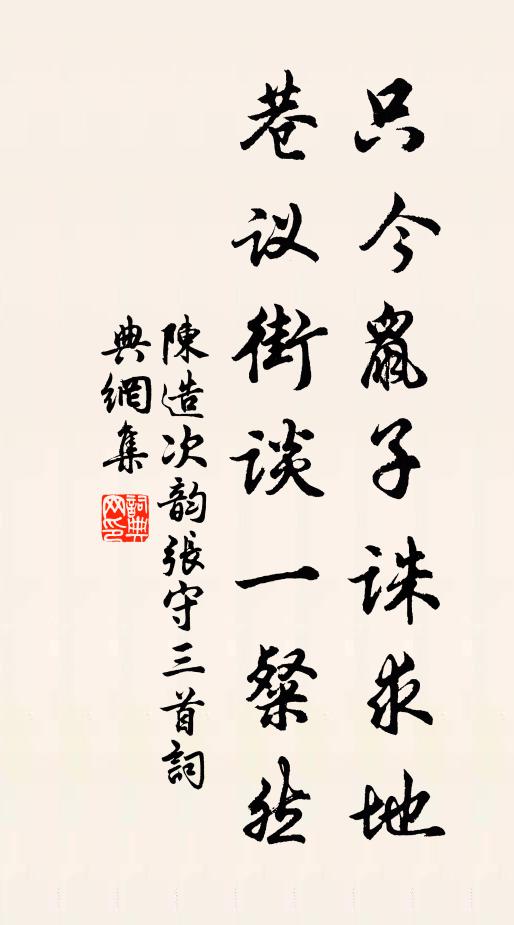 只今鼠子诛求地
巷议街谈一粲然
陳造次韵張守三首詞
典網集
詞典网印